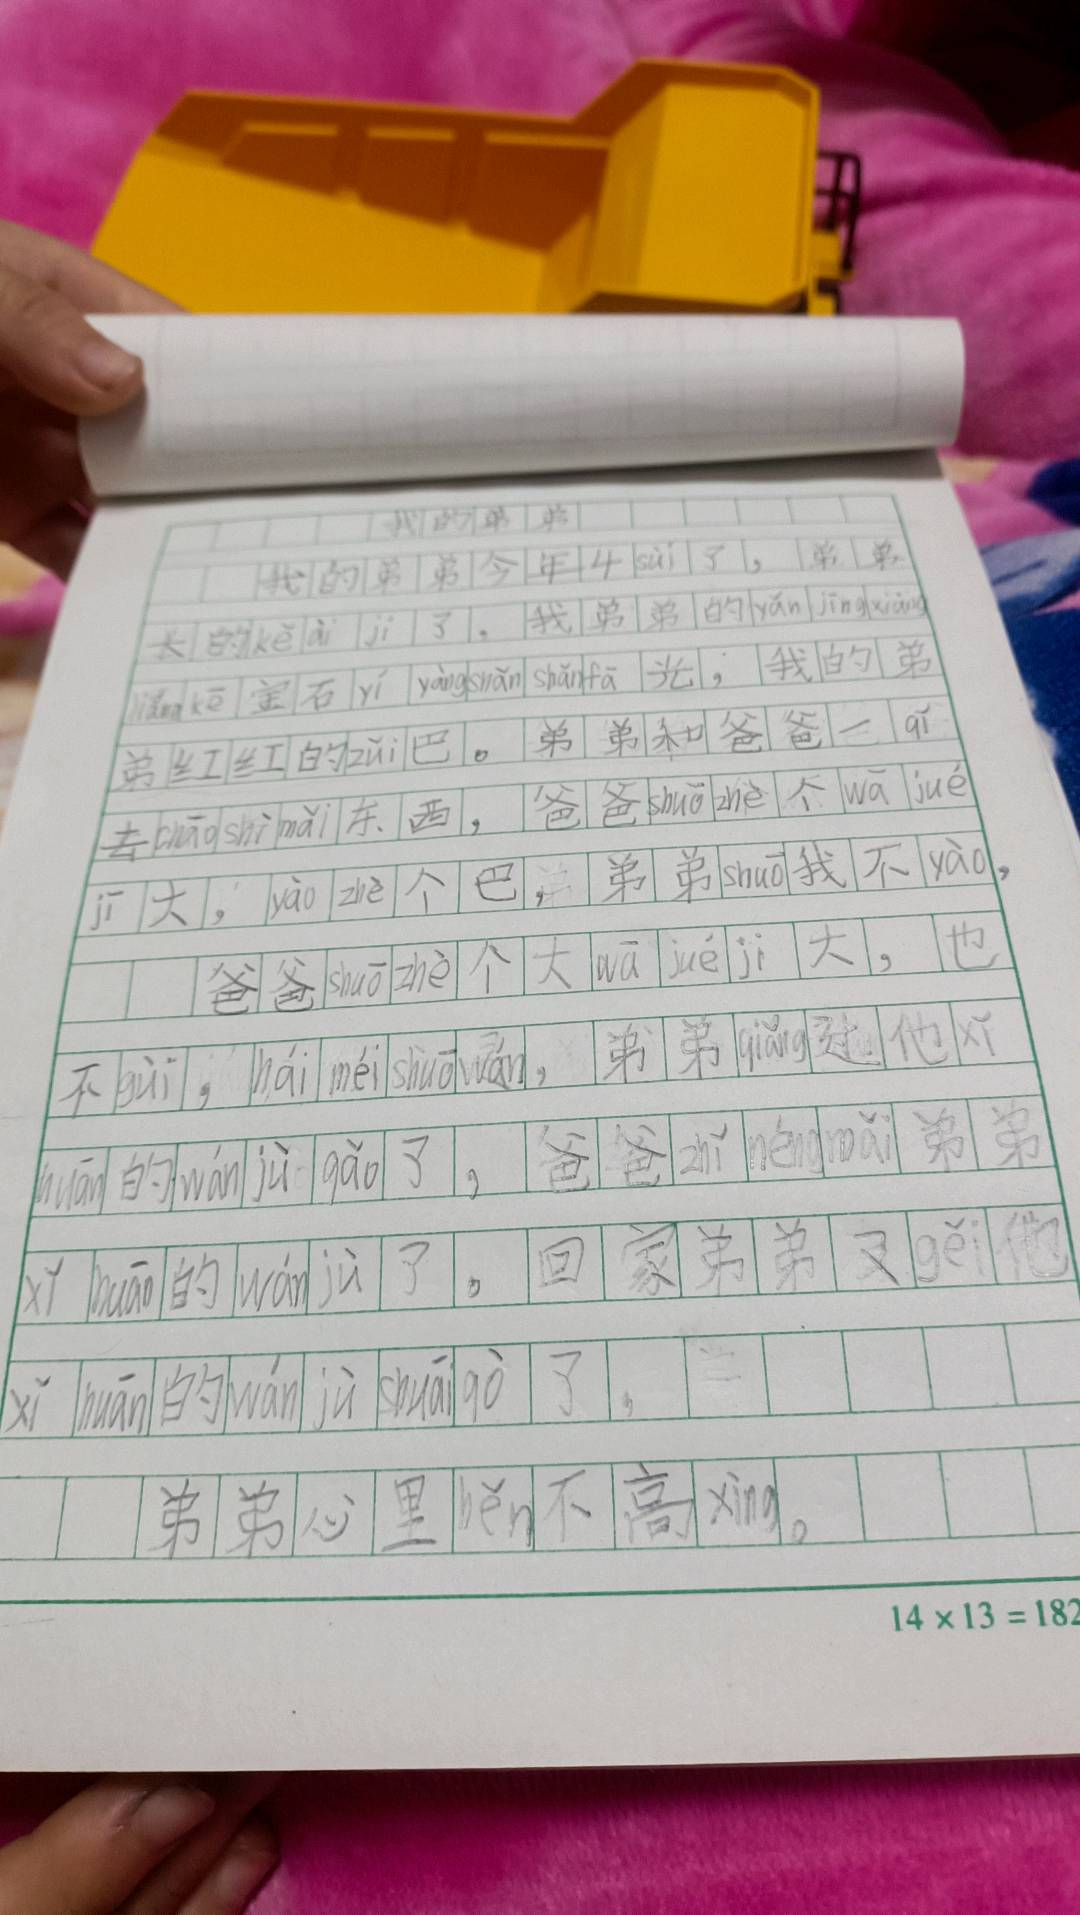 我的弟弟
我的弟弟今年4suì了，弟弟
长的kě ài jí了。我弟弟的yǎn jīng xiàng
liǎng kē宝石yí yàng shǎn shǎn fā光，我的弟
弟红红的zuǐ巴。弟弟和爸爸一qǐ
去chāo shì mǎi东西，爸爸shuō zhè个wā jué
jī大，yào zhè个巴，弟弟shuō我不yào，
爸爸shuō zhè个大wā jué jī大，也
不guì，hái méi shuō wán，弟弟qiǎng过他xǐ
huān的wán jù gǎo了，爸爸zhǐ néng mǎi弟弟
xǐ huān的wán jù了。回家弟弟又gěi他
xǐ huān的wán jù shuāi gò了，
弟弟心里běn不高xìng。
14×13=182